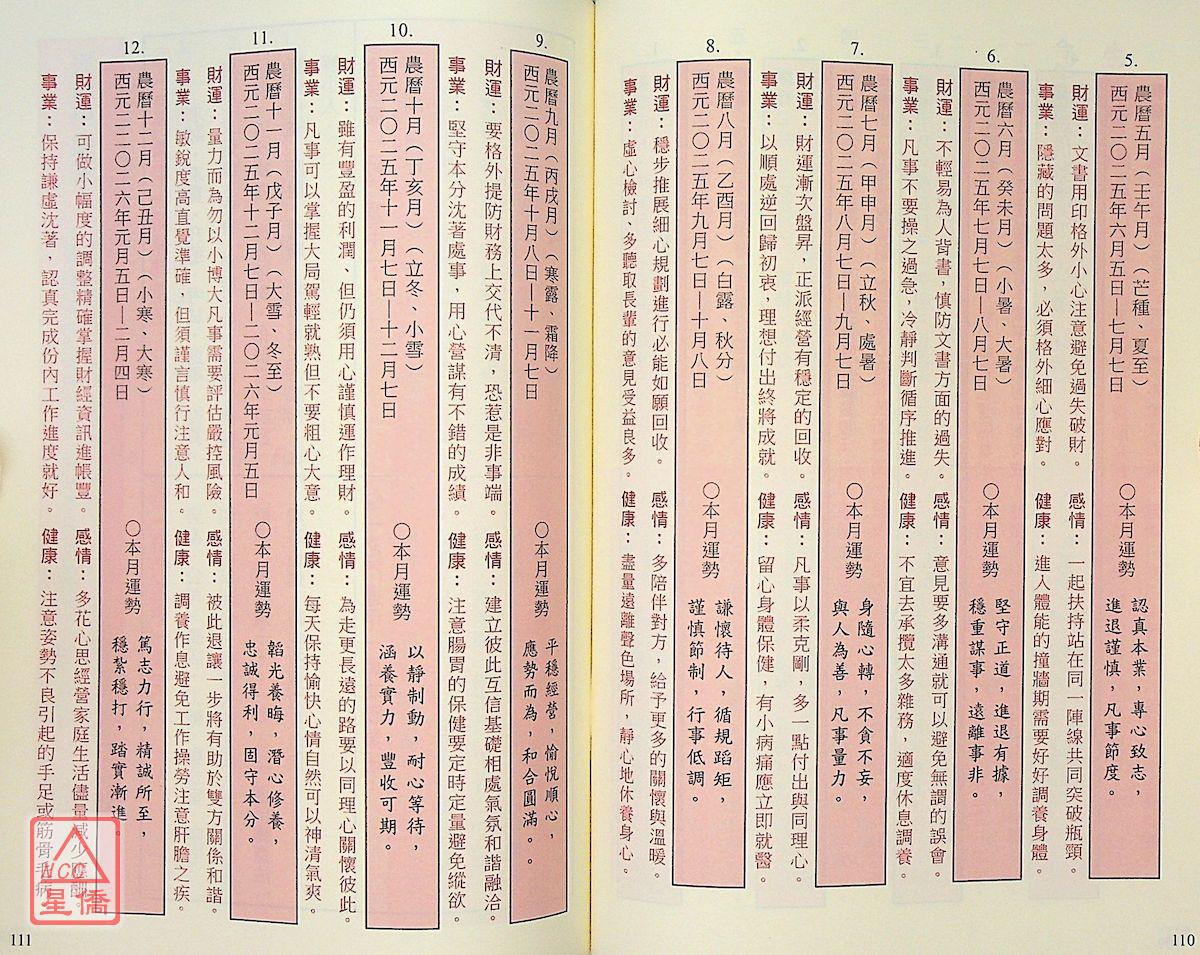 5.
農曆五月（壬午月）（芒種、夏至）
西元二〇二五年六月五日—七月七日
〇本月運勢
認真本業，專心致志，
進退謹慎，凡事節度。
財運：文書用印格外小心注意避免過失破財。
感情：一起扶持站在同一陣線共同突破瓶頸。
事業：隱藏的問題太多，必須格外細心應對。
健康：進入體能的撞牆期需要好好調養身體。
6.
農曆六月（癸未月）（小暑、大暑）
西元二〇二五年七月七日—八月七日
〇本月運勢
堅守正道，進退有據，
穩重謀事，遠離事非。
財運：不輕易為人背書，慎防文書方面的過失。
感情：意見要多溝通就可以避免無謂的誤會。
事業：凡事不要操之過急，冷靜判斷循序推進。
健康：不宜去承攬太多雜務，適度休息調養。
7.
農曆七月（甲申月）（立秋、處暑）
西元二〇二五年八月七日—九月七日
〇本月運勢
身隨心轉，不貪不妄，
與人為善，凡事量力。
財運：財運漸次盤昇，正派經營有穩定的回收。
感情：凡事以柔克剛，多一點付出與同理心。
事業：以順處逆回歸初衷，理想付出終將成就。
健康：留心身體保健，有小病痛應立即就醫。
8.
農曆八月（乙酉月）（白露、秋分）
西元二〇二五年九月七日—十月八日
〇本月運勢
謙懷待人，循規蹈矩，
謹慎節制，行事低調。
財運：穩步推展細心規劃進行必能如願回收。
感情：多陪伴對方，給予更多的關懷與溫暖。
事業：虛心檢討、多聽取長輩的意見受益良多。
健康：盡量遠離聲色場所，靜心地休養身心。
110
9.
農曆九月（丙戌月）（寒露、霜降）
西元二〇二五年十月八日—十一月七日
〇本月運勢
平穩經營，愉悅順心，
應勢而為，和合圓滿。。
財運：要格外提防財務上交代不清，恐惹是非事端。
感情：建立彼此互信基礎相處氣氛和諧融洽。
事業：堅守本分沈著處事，用心營謀有不錯的成績。
健康：注意腸胃的保健要定時定量避免縱欲。
10.
農曆十月（丁亥月）（立冬、小雪）
西元二〇二五年十一月七日—十二月七日
〇本月運勢
以靜制動，耐心等待，
涵養實力，豐收可期。
財運：雖有豐盈的利潤、但仍須用心謹慎運作理財。
感情：為走更長遠的路要以同理心關懷彼此。
事業：凡事可以掌握大局駕輕就熟但不要粗心大意。
健康：每天保持愉快心情自然可以神清氣爽。
11.
農曆十一月（戊子月）（大雪、冬至）
西元二〇二五年十二月七日—二〇二六年元月五日
〇本月運勢
韜光養晦，潛心修養，
忠誠得利，固守本分。
財運：量力而為勿以小博大凡事需要評估嚴控風險。
感情：被此退讓一步將有助於雙方關係和諧。
事業：敏銳度高直覺準確，但須謹言慎行注意人和。
健康：調養作息避免工作操勞注意肝膽之疾。
12.
農曆十二月（己丑月）（小寒、大寒）
西元二二〇二六年元月五日—二月四日
〇本月運勢
篤志力行，精誠所至，
穩紮穩打，踏實漸進。
財運：可做小幅度的調整精確掌握財經資訊進帳豐。
感情：多花心思經營家庭生活儘量減少應酬。
事業：保持謙虛沈著，認真完成份內工作進度就好。
健康：注意姿勢不良引起的手足或筋骨毛病。
111
NCC
星僑